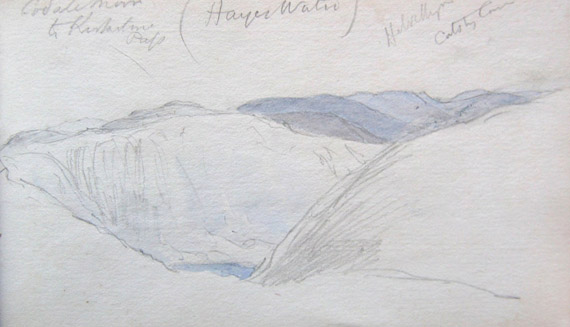 to Kirkstone
Pass
(Hayes Water)
Helvellyn
Catsty Cam